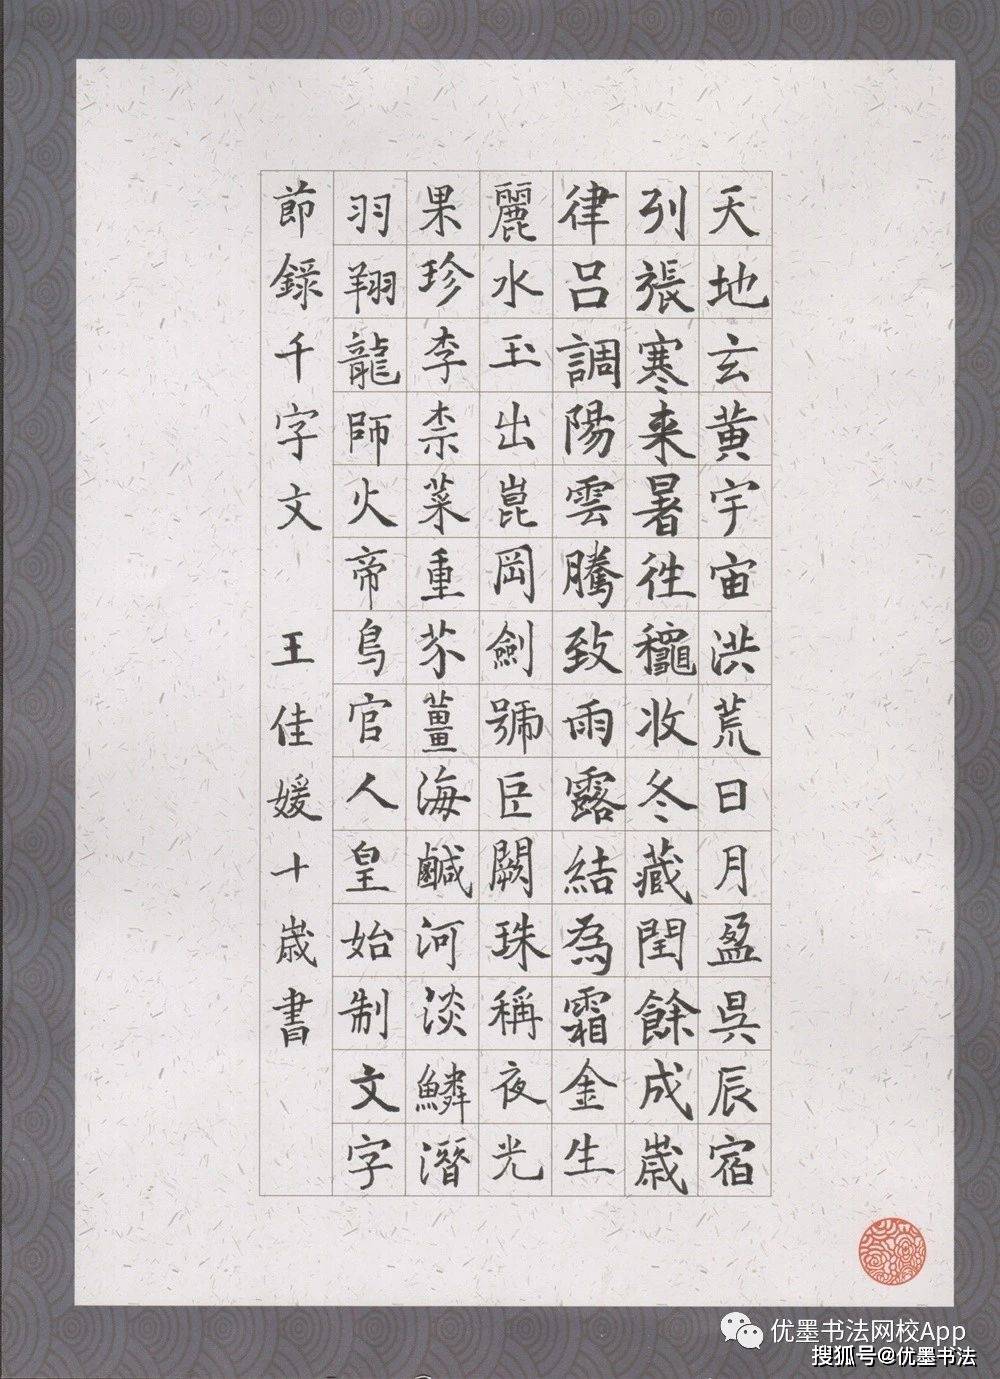 天地玄黃宇宙洪荒日月盈昃辰宿
列張寒来暑往穐收冬藏閏餘成歲
律呂調陽雲騰致雨露結為霜金生
麗水玉出崑岡劍號巨闕珠稱夜光
果珍李柰菜重芥薑海鹹河淡鱗潛
羽翔龍師火帝鳥官人皇始制文字
節錄千字文 王佳媛十歲書
优墨书法网校App
搜狐号@优墨书法